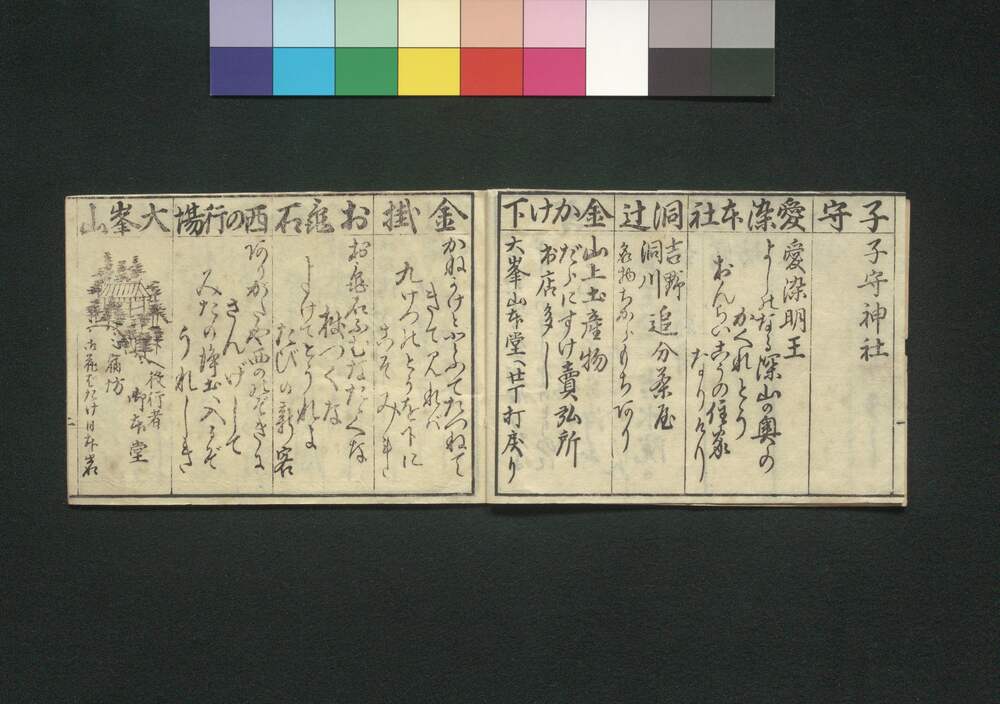 子守
子守神社
愛染本社
愛染明王
よしのなる深山の奥の
かくれとう
おんちいこうの住家
なりけり
洞辻
吉野
洞川
追分茶屋
名物ちからもちあり
金かけ下
山上土産物
だらにすけ賣弘所
お店多し
大峯山本堂へ廿丁打戻り
金掛
かねかけととふてたつねて
きて見れバ
九けつのとうを下に
こそみれ
お亀石
お亀石ふむなたゝくな
杖つくな
よけてとうれよ
たびの新客
西の行場
ありがたや西ののぞきに
さんげして
みだの浄土へ入るぞ
うれしき
大峯山
役行者
御本堂
宿坊
お花ばたけ日本岩